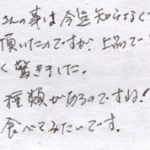 さんの事は今迄知らなくて
頂いたのですが、上品で
く驚きました。
種類があるのですね!
食べてみたいです。